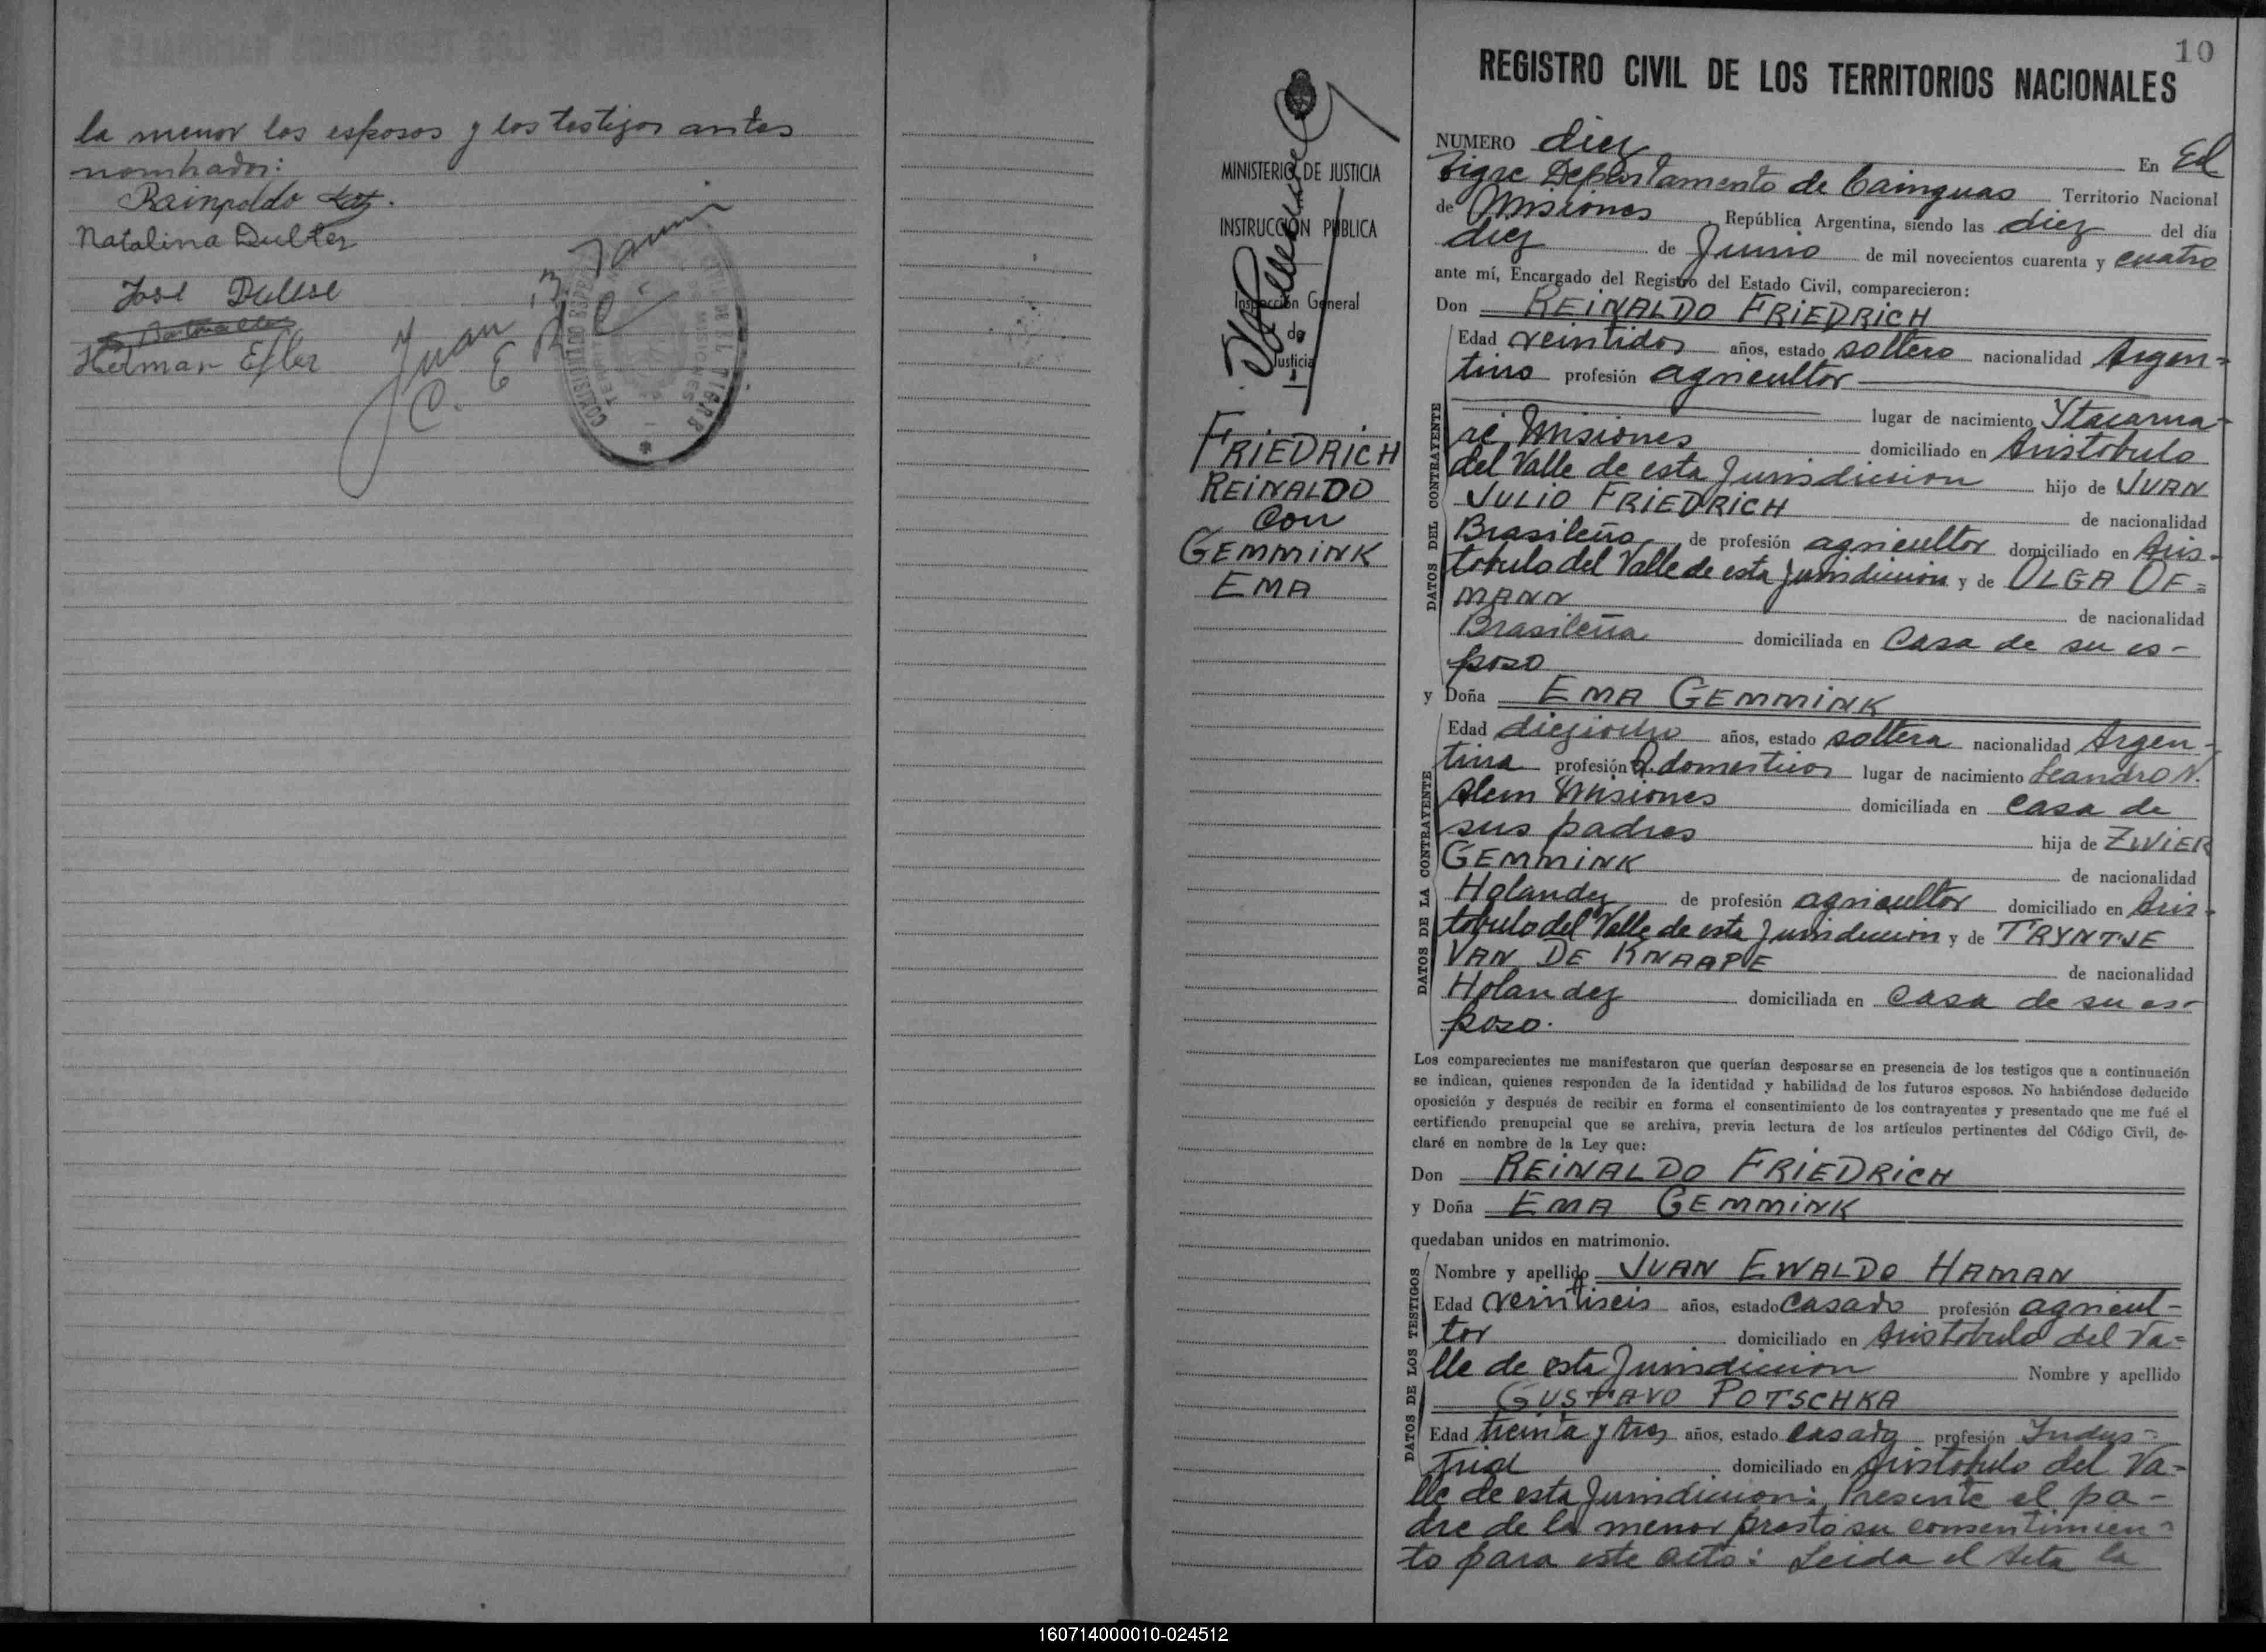 la menor los esposos y los testigos antes
nombrados:
Natalina Dulter
José Dulese
Herman Efler
Juan
C. E. R. C.
COMISARIADO
EL TIGRE
MISIONES
10
REGISTRO CIVIL DE LOS TERRITORIOS NACIONALES
MINISTERIO DE JUSTICIA
INSTRUCCIÓN PUBLICA
Inspección General
de
Justicia
FRIEDRICH
REINALDO
con
GEMMINK
EMA
NUMERO diez En El
Tigre Departamento de Cainguas Territorio Nacional
de Misiones, República Argentina, siendo las diez del día
diez de Junio de mil novecientos cuarenta y cuatro
ante mí, Encargado del Registro del Estado Civil, comparecieron:
Don REINALDO FRIEDRICH
DATOS DEL CONTRAYENTE
Edad veintidos años, estado soltero nacionalidad Argen-
tino profesión agricultor
lugar de nacimiento Ytacarua-
ré Misiones domiciliado en Aristobulo
del Valle de esta Jurisdiccion hijo de JUAN
JULIO FRIEDRICH de nacionalidad
Brasileño, de profesión agricultor domiciliado en Aris-
tobulo del Valle de esta jurisdiccion y de OLGA OF=
MANN de nacionalidad
Brasileña domiciliada en Casa de su es-
poso
y Doña EMA GEMMINK
DATOS DE LA CONTRAYENTE
Edad dieziocho años, estado soltera nacionalidad Argen-
tina profesión Q. domesticos lugar de nacimiento Leandro N.
Alem Misiones domiciliada en casa de
sus padres hija de ZWIER
GEMMINK de nacionalidad
Holandez de profesión agricultor domiciliado en Aris-
tobulo del Valle de esta Jurisdiccion y de TRYNTJE
VAN DE KNAAPE de nacionalidad
Holandez domiciliada en Casa de su es-
poso.
Los comparecientes me manifestaron que querían desposarse en presencia de los testigos que a continuación
se indican, quienes responden de la identidad y habilidad de los futuros esposos. No habiéndose deducido
oposición y después de recibir en forma el consentimiento de los contrayentes y presentado que me fué el
certificado prenupcial que se archiva, previa lectura de los artículos pertinentes del Código Civil, de-
claré en nombre de la Ley que:
Don REINALDO FRIEDRICH
y Doña EMA GEMMINK
quedaban unidos en matrimonio.
DATOS DE LOS TESTIGOS
Nombre y apellido JUAN EWALDO HAMAN
Edad veintiseis años, estado Casado profesión agricul-
tor domiciliado en Aristobulo del Va=
lle de esta Jurisdiccion Nombre y apellido
GUSTAVO POTSCHKA
Edad treinta y tres años, estado Casado profesión Indus-
trial domiciliado en Aristobulo del Va-
lle de esta Jurisdiccion: Presente el pa-
dre de la menor prestó su consentimien-
to para este acto: Leida el Acta la
160714000010-024512